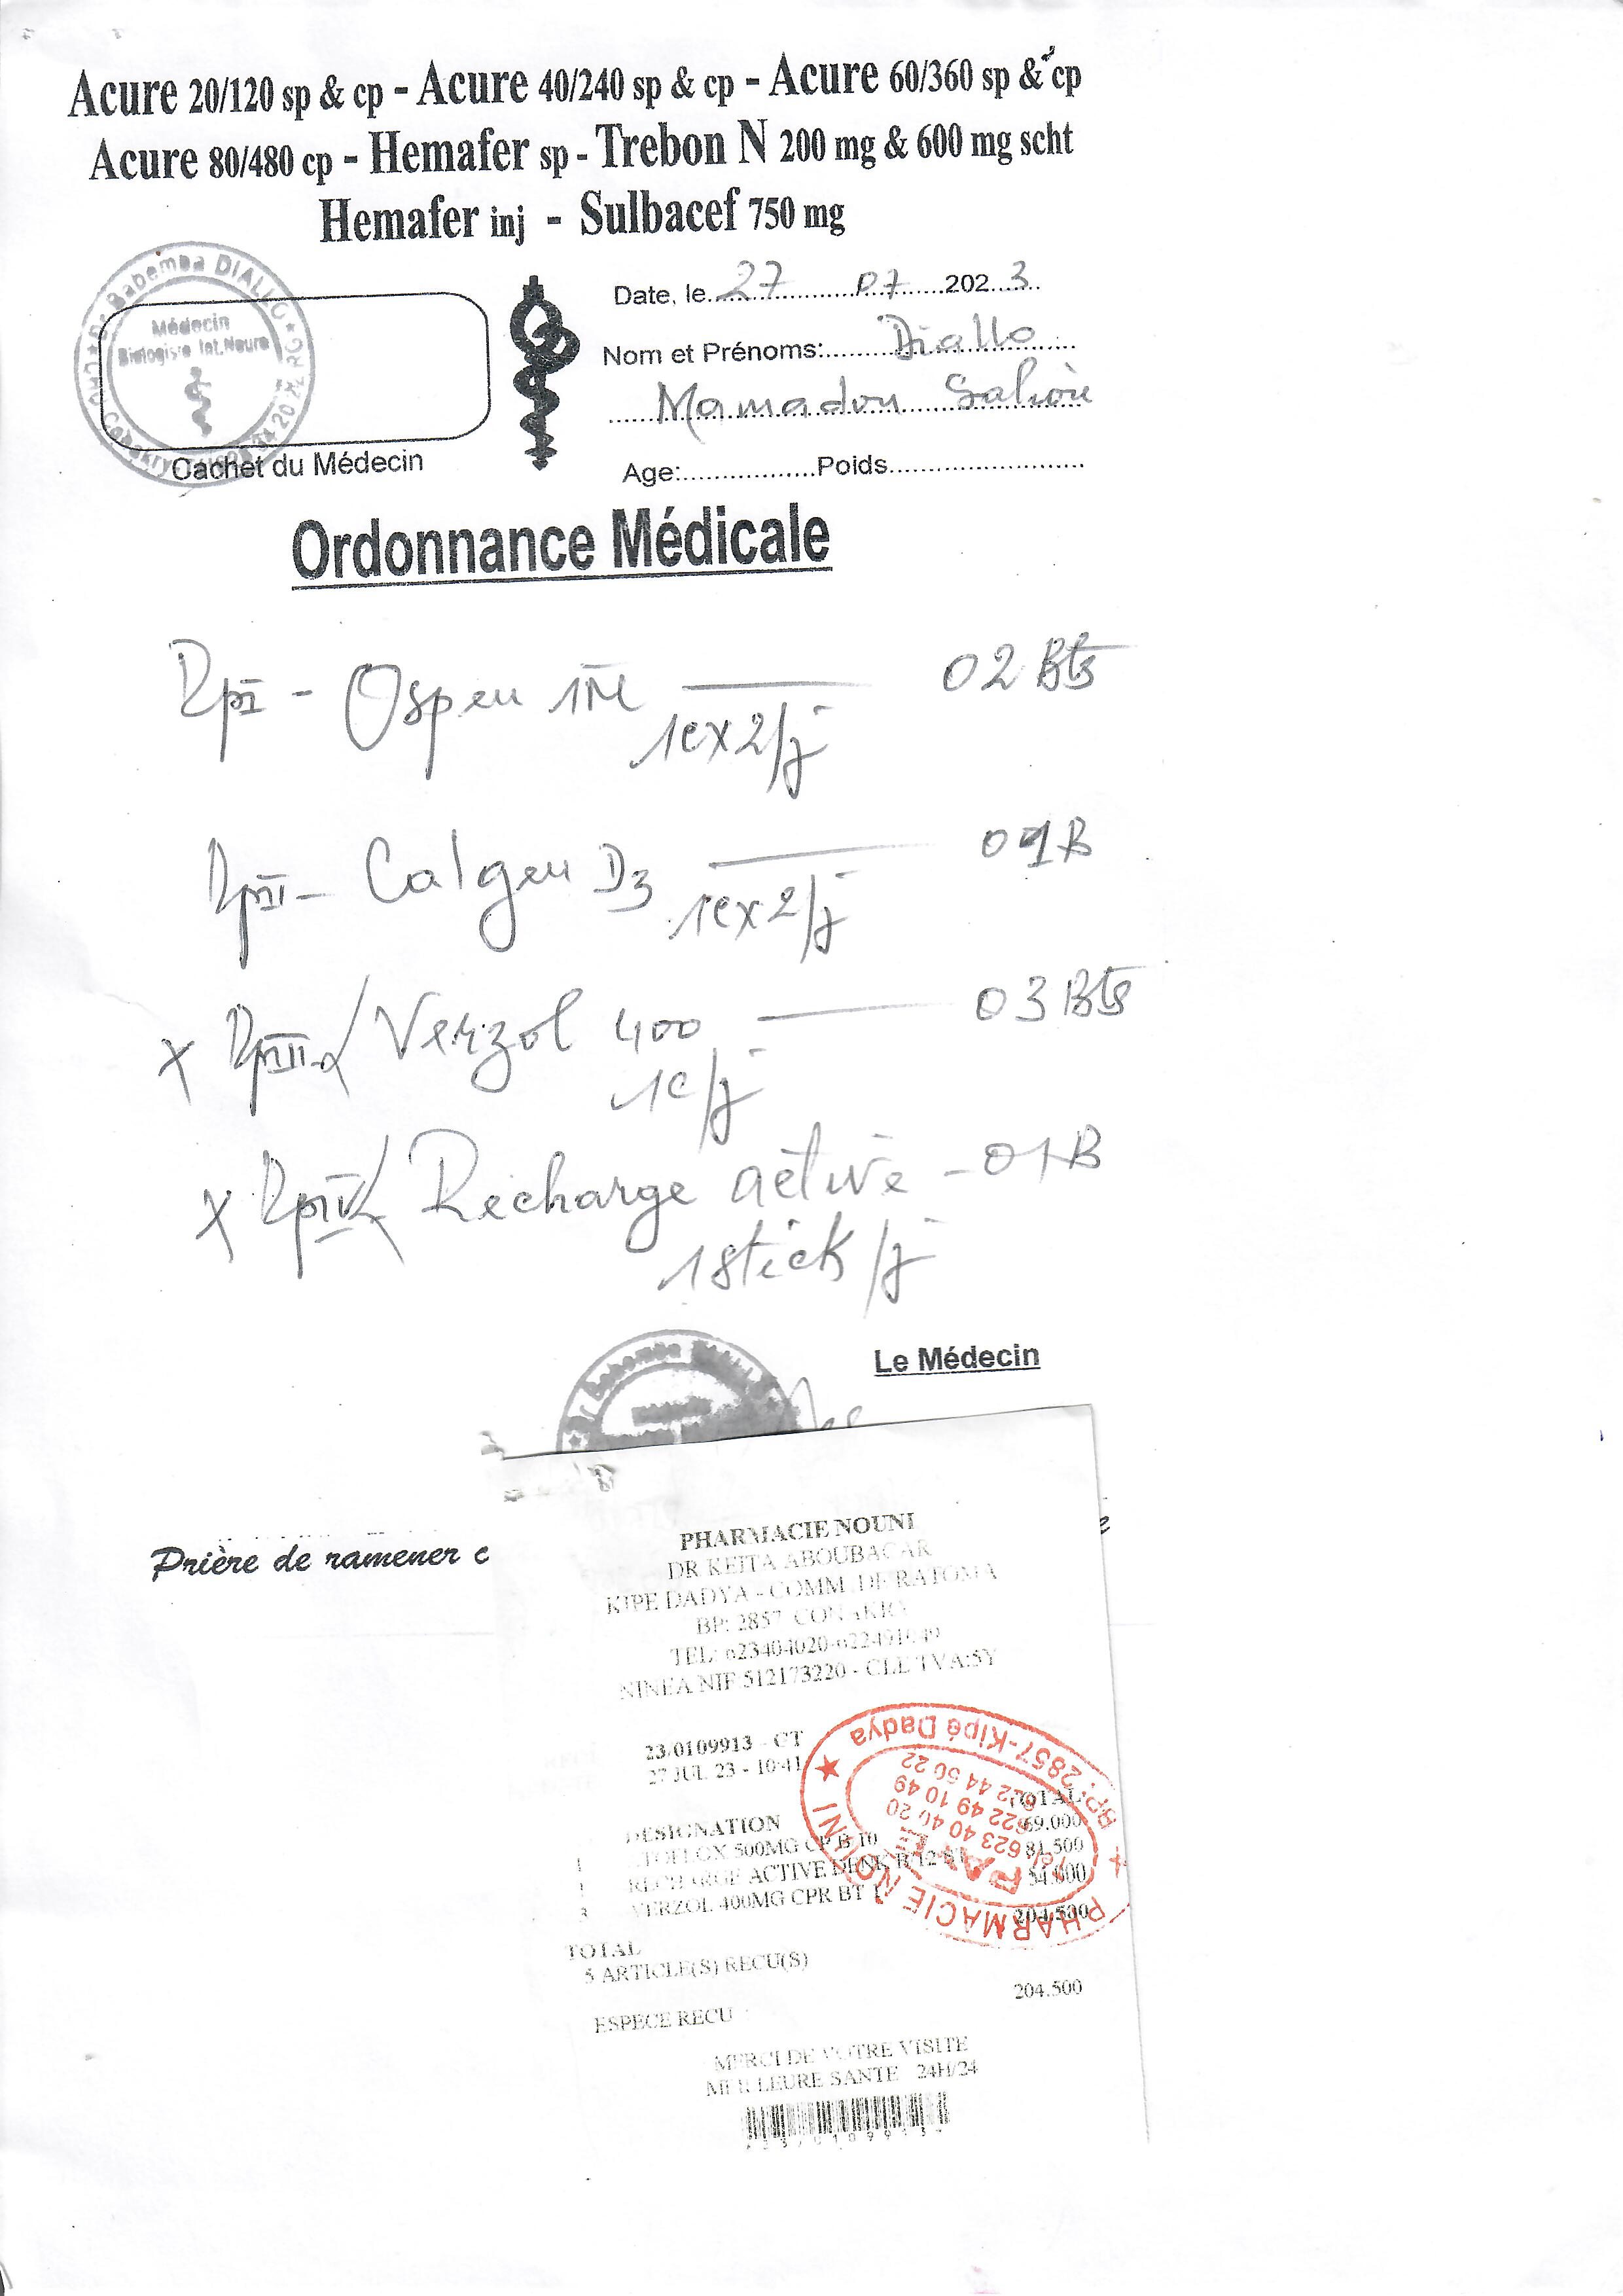 Acure 20/120 sp & cp - Acure 40/240 sp & cp - Acure 60/360 sp & cp
Acure 80/480 cp - Hemafer sp - Trebon N 200 mg & 600 mg scht
Hemafer inj - Sulbacef 750 mg
Babemba DIALLO
Médecin
Biologiste Int.Neuro
Date, le 27 07 2023
Nom et Prénoms: Diallo
Mamadou Saliou
Cachet du Médecin
Age: Poids
Ordonnance Médicale
RpI - Ospen 1M 02 Bts
1cx2/j
RpII - Calgen D3 01B
1cx2/j
x RpIII Verzol 400 03 Bts
1c/j
x RpIV Recharge active - 01B
1stick/j
Le Médecin
Prière de ramener c
PHARMACIE NOUNI
DR KEITA ABOUBACAR
KIPE DADYA - COMM. DE RATOMA
BP: 2857 CONAKRY
TEL: 623404020-622491049
NINEA NIF 512173220 - CLE TVA:5Y
23/0109913 - CT
27 JUL 23 - 10:41
DESIGNATION TOTAL
1 500MG CP B 10 69.000
1 RECHARGE ACTIVE DENK B/12 81.500
3 VERZOL 400MG CPR BT 1 54.000
204.500
TOTAL
5 ARTICLE(S) RECU(S)
204.500
ESPECE RECU :
MERCI DE VOTRE VISITE
MEILLEURE SANTE 24H/24
PHARMACIE NOUNI
BP: 2857-Kipé Dadya
PAYE
Tel
623 40 40 20
622 49 10 49
622 44 50 22